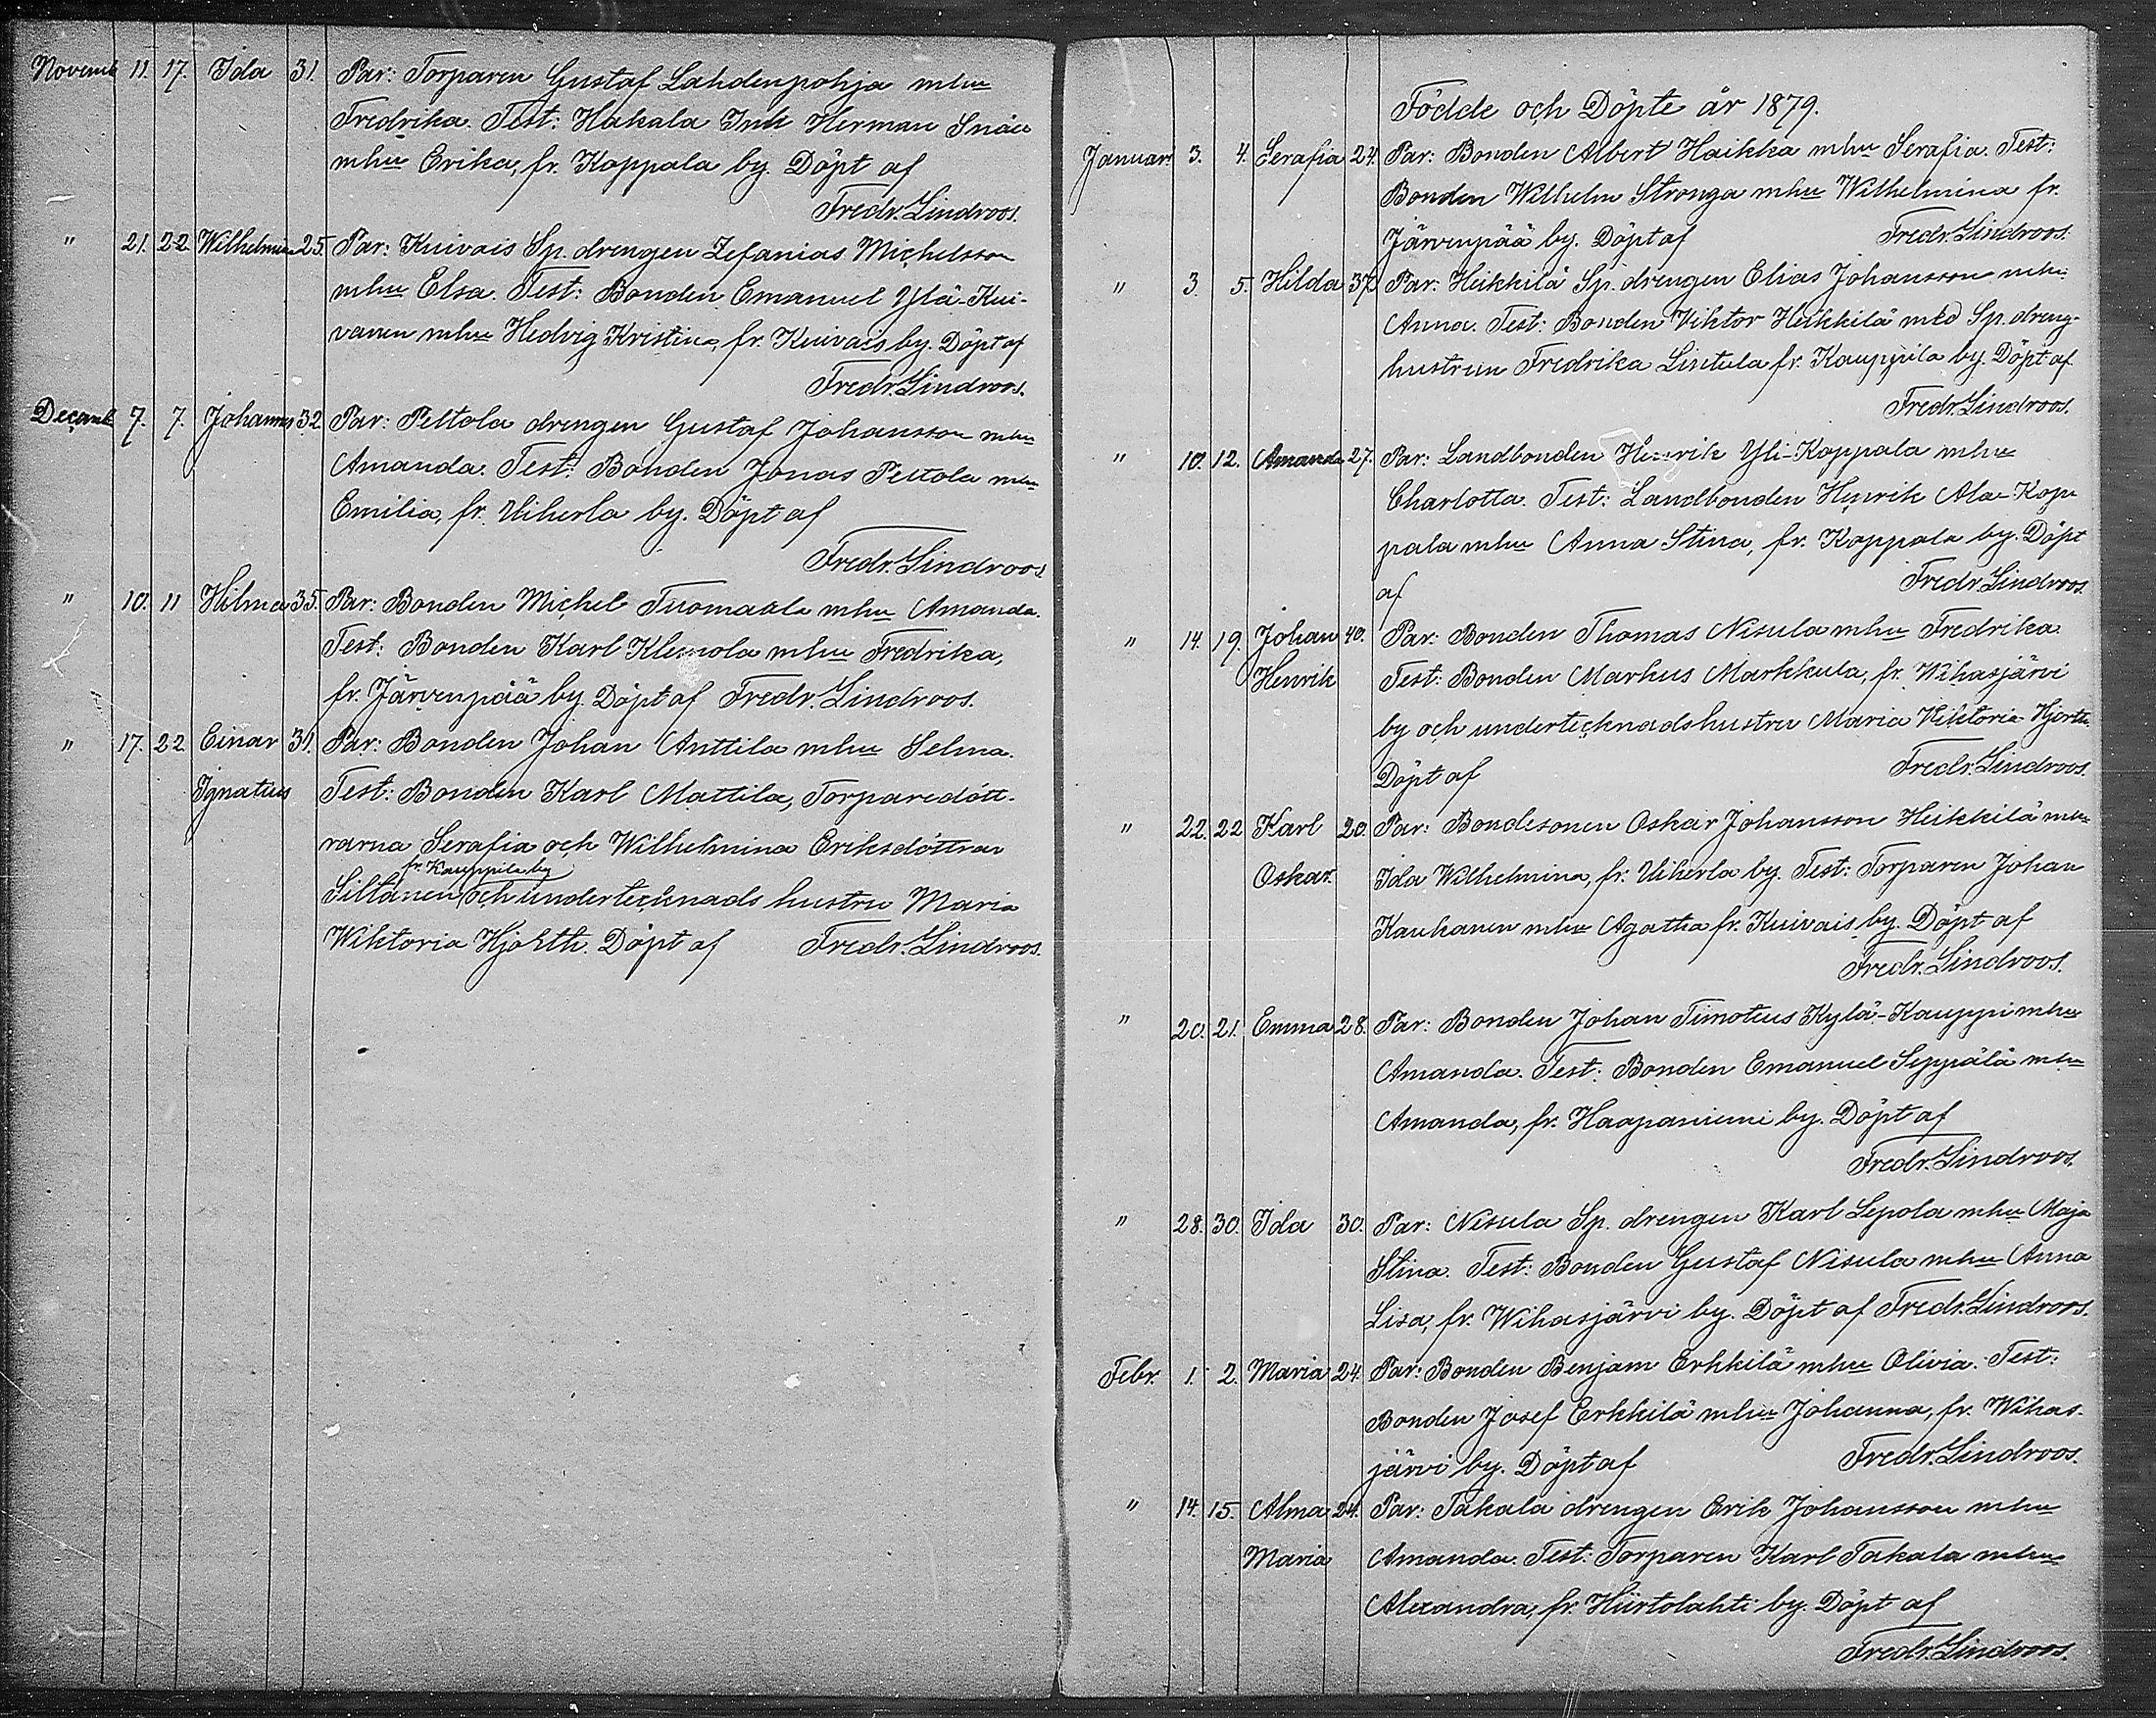 Novemb 11. 17. Ida 31. Par: Torparen Gustaf Lahdenpohja mhu
Fredrika. Test: Hakala Inh Herman Snäll
mhu Erika, fr. Koppala by. Döpt af
Fredr. Lindroos.
" 21. 22 Wilhelmina 25. Par: Kuivais Sp. drengen Zefanias Michelsson
mhu Elsa. Test: Bonden Emanuel Ylä-Kui-
vanen mhu Hedvig Kristina, fr. Kuivais by. Döpt af
Fredr. Lindroos.
Decemb 7. 7. Johannes 32 Par: Peltola drengen Gustaf Johansson mhu
Amanda. Test: Bonden Jonas Peltola mhu
Emilia, fr. Uiherla by. Döpt af
Fredr. Lindroos.
" 10. 11 Hilma 35. Par: Bonden Michel Tuomaala mhu Amanda.
Test: Bonden Karl Klemola mhu Fredrika,
fr. Järvenpää by. Döpt af Fredr. Lindroos.
" 17. 22 Einar 31. Par: Bonden Johan Anttila mhu Selma.
Ignatius Test: Bonden Karl Mattila, Torparedött-
rarna Serafia och Wilhelmina Eriksdöttrar
fr. Kauppila by
Siltanen och undertecknads hustru Maria
Wiktoria Hjorth. Döpt af Fredr. Lindroos.
Födde och Döpte år 1879.
Januari 3. 4. Serafia 24. Par: Bonden Albert Haikka mhu Serafia. Test:
Bonden Wilhelm Stronga mhu Wilhelmina fr.
Järvenpää by. Döpt af Fredr. Lindroos.
" 3 5. Hilda 37. Par: Heikkilä Sp. drengen Elias Johansson mhu
Anna. Test: Bonden Viktor Heikkilä med Sp. dreng-
hustrun Fredrika Lintula fr. Kauppila by. Döpt af
Fredr. Lindroos.
" 10. 12. Amanda 27. Par: Landbonden Henrik Yli-Koppala mhu
Charlotta. Test: Landbonden Henrik Ala-Kop-
pala mhu Anna Stina, fr. Koppala by. Döpt
af Fredr. Lindroos.
" 14. 19. Johan 40. Par: Bonden Thomas Nisula mhu Fredrika.
Henrik Test: Bonden Markus Markkula, fr. Wihasjärvi
by och undertecknads hustru Maria Viktoria Hjorth.
Döpt af Fredr. Lindroos.
" 22. 22 Karl 20. Par: Bondesonen Oskar Johansson Heikkilä mhu
Oskar. Ida Wilhelmina, fr. Uiherla by. Test: Torparen Johan
Kauhanen mhu Agatha fr. Kuivais by. Döpt af
Fredr. Lindroos.
" 20. 21. Emma 28. Par: Bonden Johan Timoteus Kylä-Kauppi mhu
Amanda. Test: Bonden Emanuel Seppälä mhu
Amanda, fr. Haapaniemi by. Döpt af
Fredr. Lindroos.
" 28. 30. Ida 30. Par: Nisula Sp. drengen Karl Lepola mhu Maja
Stina. Test: Bonden Gustaf Nisula mhu Anna
Lisa, fr. Wihasjärvi by. Döpt af Fredr. Lindroos.
Febr. 1. 2. Maria 24. Par: Bonden Benjam Erkkilä mhu Olivia. Test:
Bonden Josef Erkkilä mhu Johanna, fr. Wihas-
järvi by. Döpt af Fredr. Lindroos.
" 14. 15. Alma 24. Par: Takala drengen Erik Johansson mhu
Maria Amanda. Test: Torparen Karl Takala mhu
Alexandra, fr. Hiirtolahti by. Döpt af
Fredr. Lindroos.